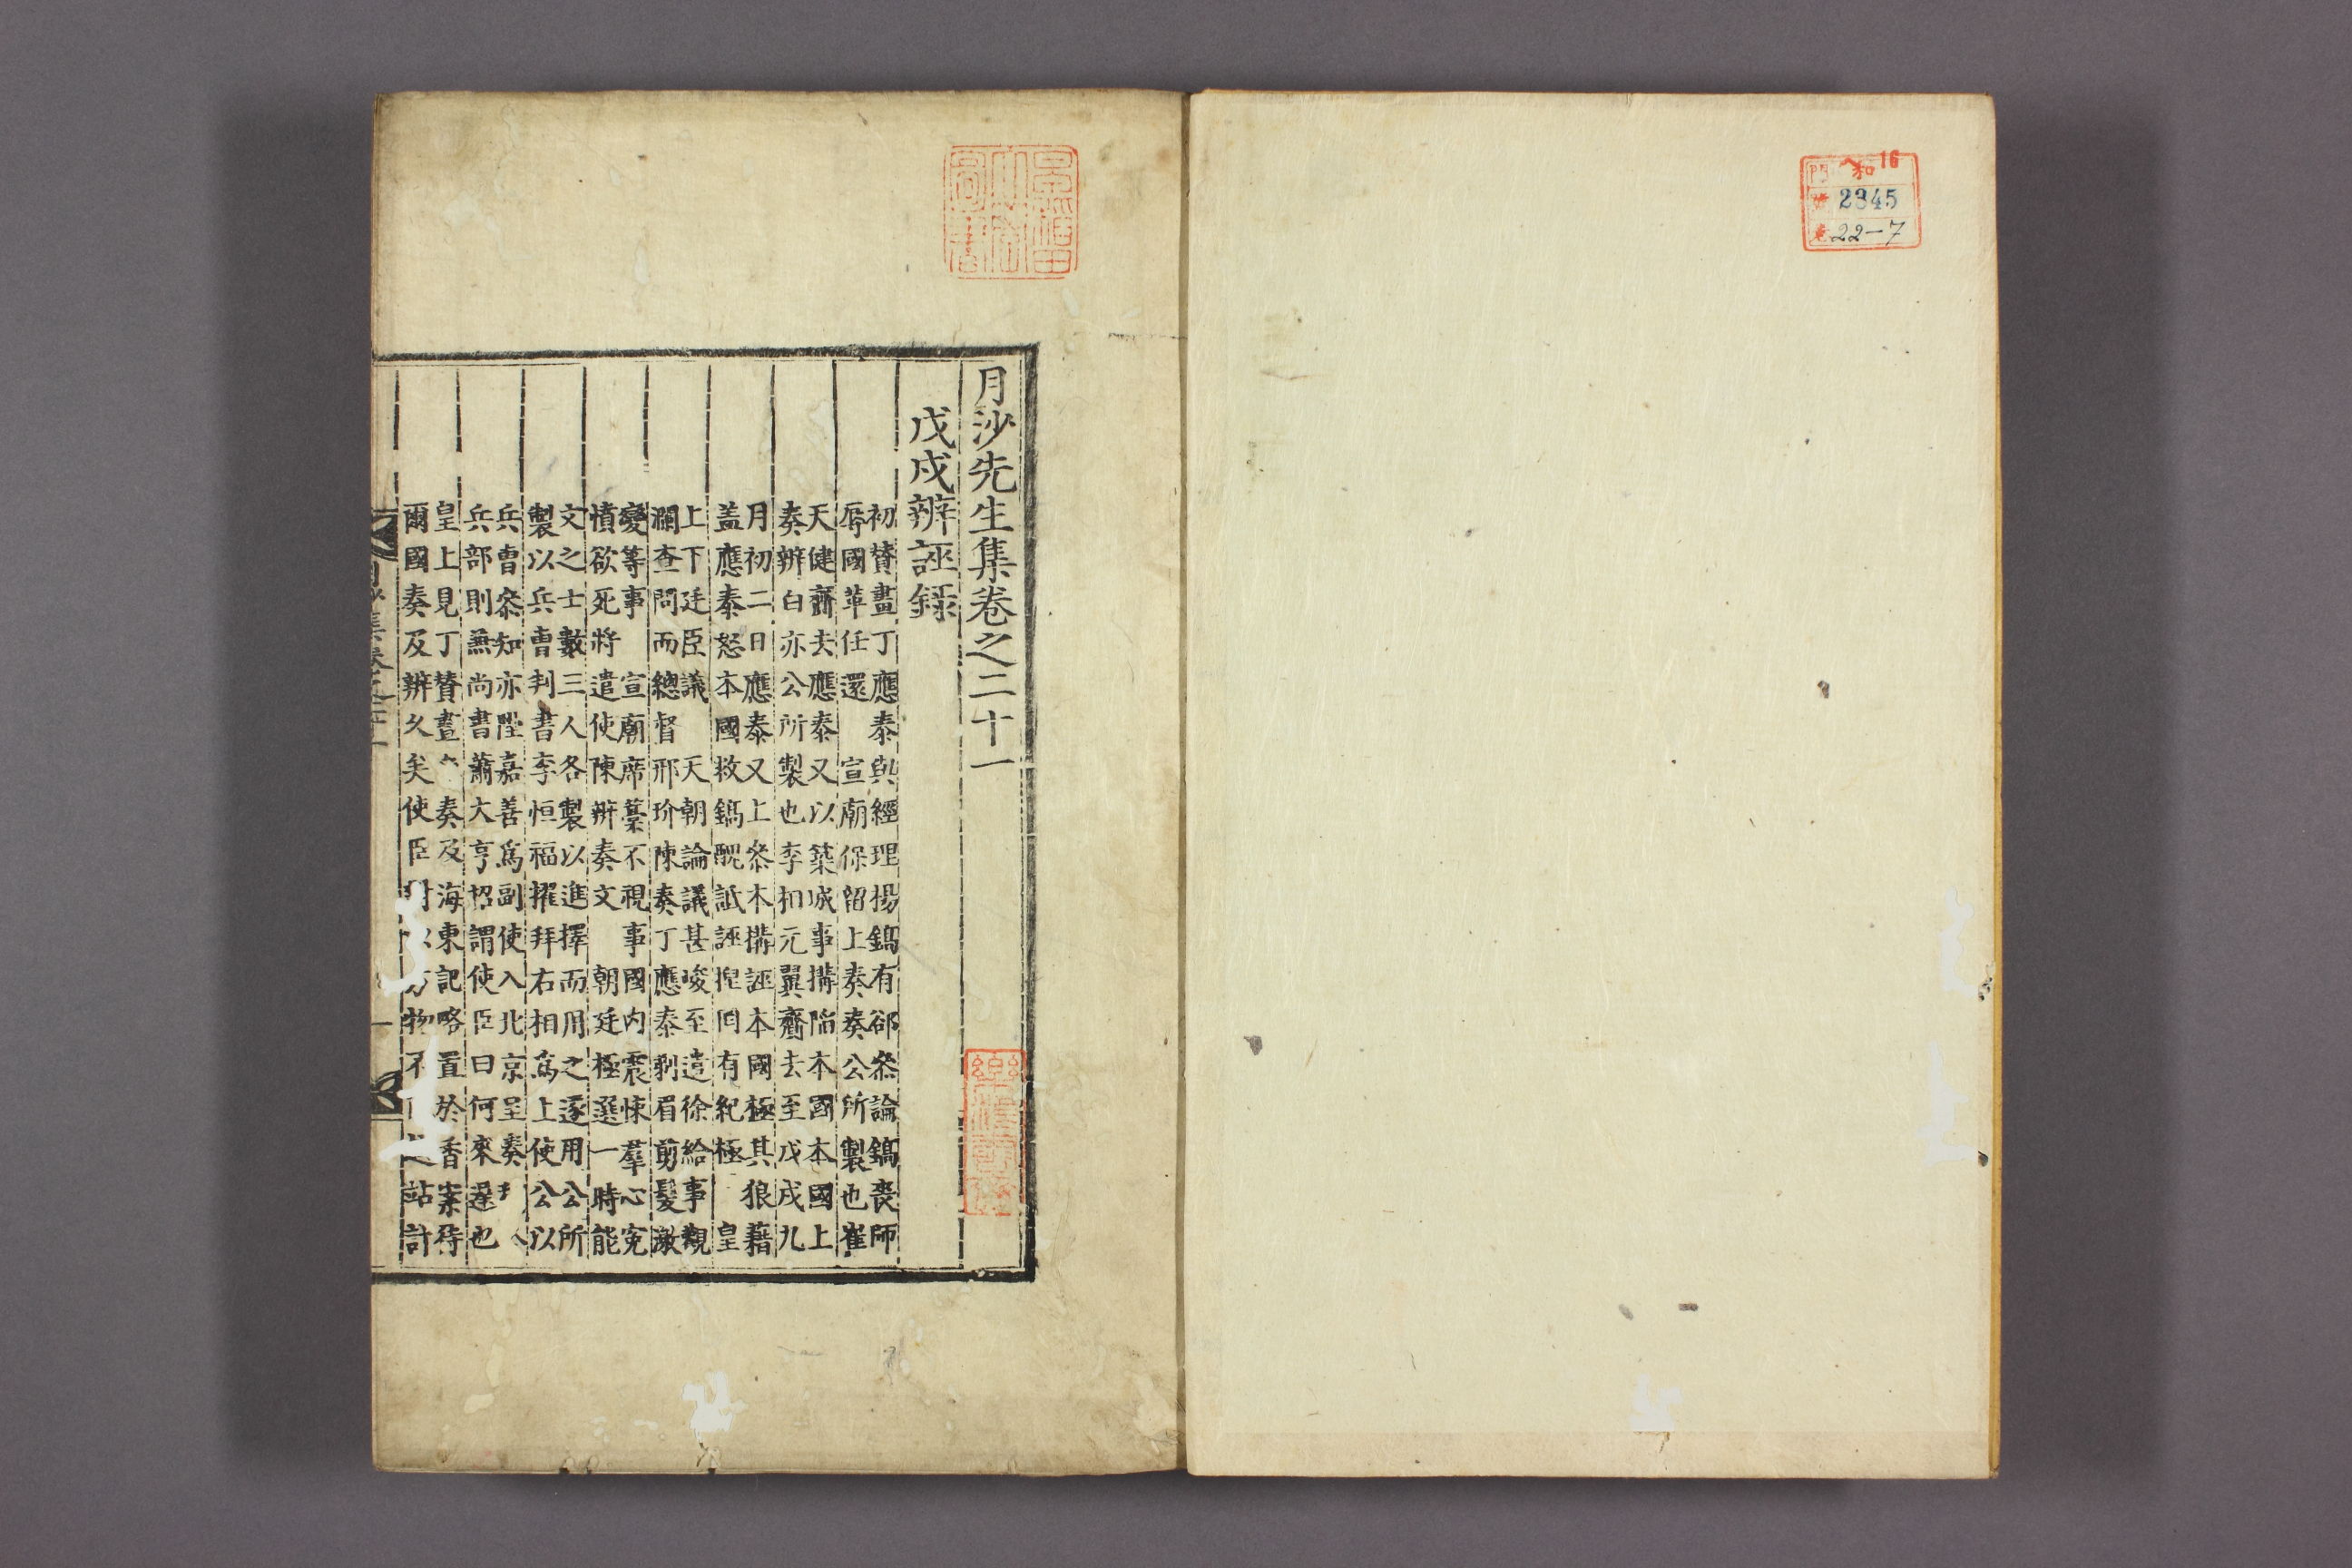 和 16
門
號 2345
卷 22-7
月沙先生集卷之二十一
戊戌辨誣録
初賛畫丁應泰與經理楊鎬有郤叅論鎬喪師
辱國革任還 宣廟保留上奏奏公所製也崔
天健齎去應泰又以築城事搆陷本國本國上
奏辨白亦公所製也李扣元翼齎去至戊戌九
月初二日應泰又上叅本搆誣本國極其狼藉
盖應泰怒本國救鎬醜詆誣捏罔有紀極 皇
上下廷臣議 天朝論議甚峻至遣徐給事觀
瀾查問而總督邢玠陳奏丁應泰剃眉剪髮激
變等事 宣廟席藁不視事國内震悚羣心寃
憤欲死將遣使陳辨奏文 朝廷極選一時能
文之士數三人各製以進擇而用之遂用公所
製以兵曹判書李恒福擢拜右相爲上使公以
兵曹叅知亦陞嘉善爲副使入北京呈奏
兵部則無尚書蕭大亨招謂使臣曰何來遲也
皇上見丁賛畫 奏及海東記略置於香案待
爾國奏及辨久矣使臣 物 站討